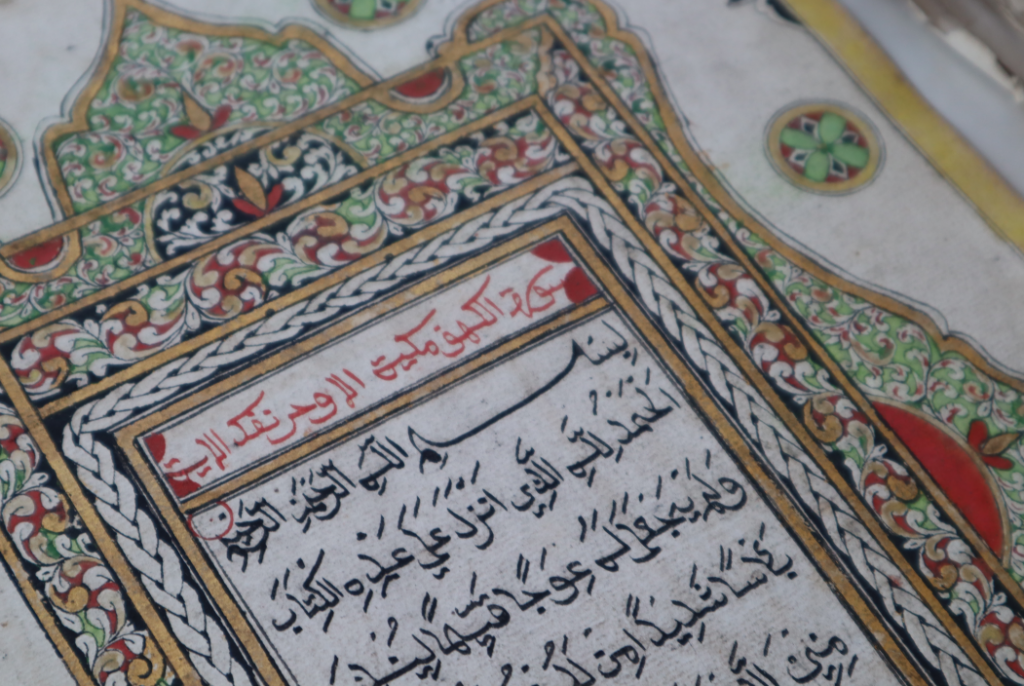 سورة الكهف مكية
بسم الله الرحمن الرحيم
الحمد لله الذي انزل على عبده الكتاب
ولم يجعل له عوجا قيما لينذر
باسا شديدا من